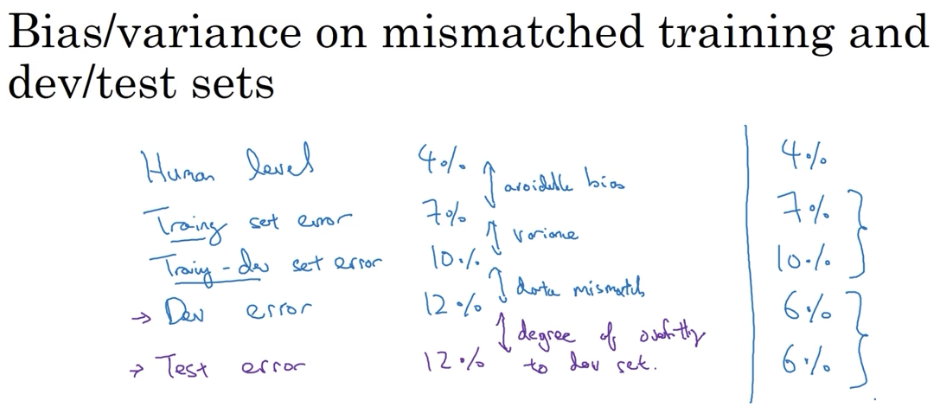 Bias/variance on mismatched training and
dev/test sets
Human level 4% 4%
avoidable bias
Traing set error 7% 7%
variance
Traing-dev set error 10% 10%
data mismatch
→ Dev error 12% 6%
degree of overfitty
→ Test error 12% to dev set. 6%